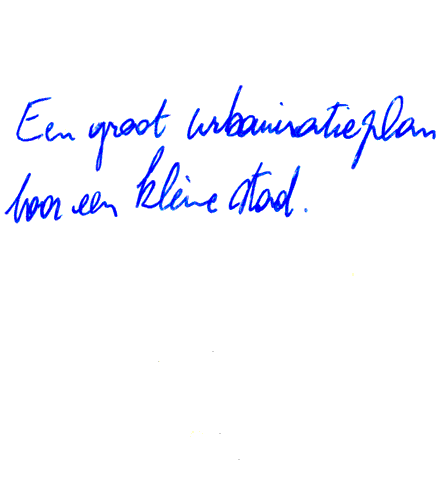 Een groot urbanisatieplan
voor een kleine stad.